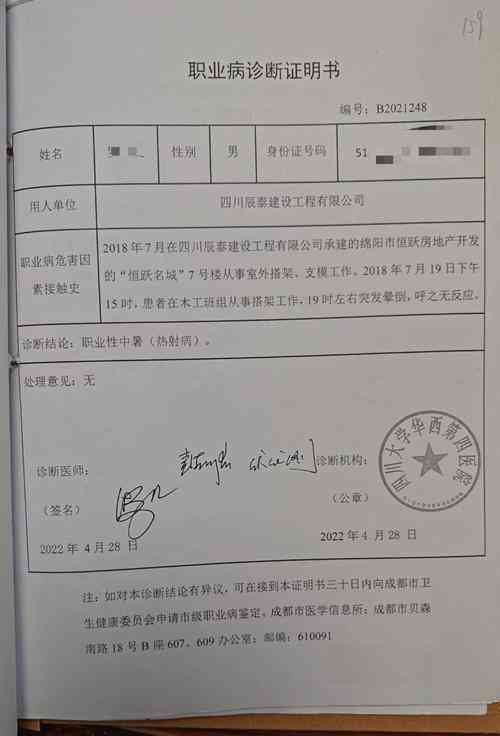 159
职业病诊断证明书
编号：B2021248
姓名 性别 男 身份证号码 51
用人单位 四川辰泰建设工程有限公司
职业病危害因素接触史
2018年7月在四川辰泰建设工程有限公司承建的绵阳市恒跃房地产开发
的“恒跃名城”7号楼从事室外搭架、支模工作。2018年7月19日下午
15时，患者在木工班组从事搭架工作，19时左右突发晕倒，呼之无反应。
诊断结论：职业性中暑（热射病）。
处理意见：无
诊断医师： 诊断机构：
（签名） （公章）
四川大学华西第四医院
2022年4月28日 2022年4月28日
注：如对本诊断结论有异议，可在接到本证明书三十日内向成都市卫
生健康委员会申请市级职业病鉴定。成都市医学信息所：成都市贝森
南路18号B座607、609办公室；邮编：610091